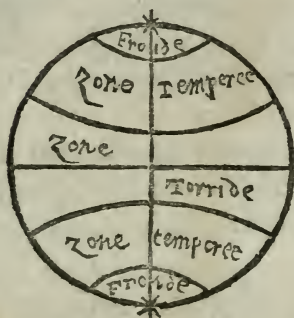 Froide
Zone Temperee
Zone
Torride
Zone temperee
Froide